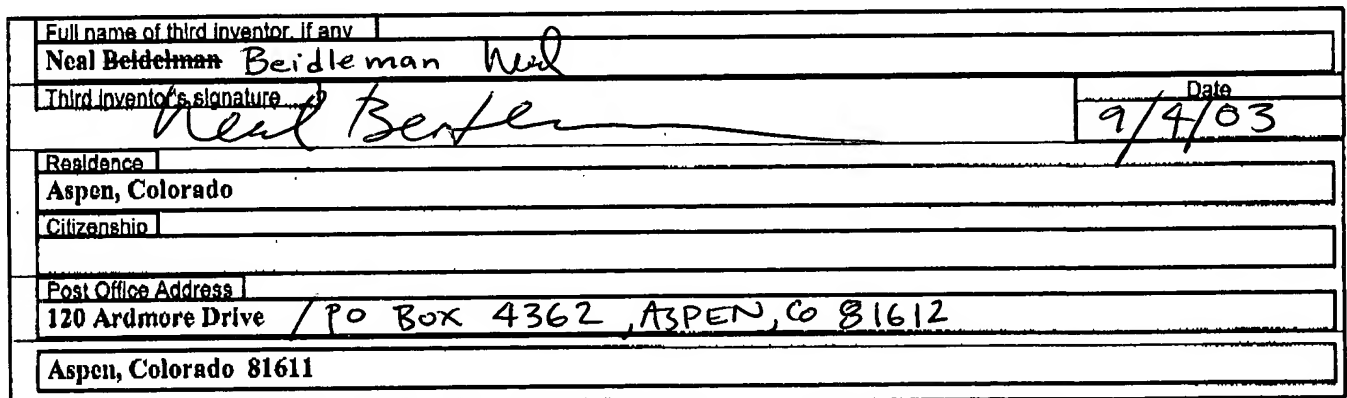 Full name of third inventor, if any
Neal Beidelman Beidleman Neal
Third inventor's signature Date
Neal Beidleman 9/4/03
Residence
Aspen, Colorado
Citizenship
Post Office Address
120 Ardmore Drive / PO BOX 4362, ASPEN, CO 81612
Aspen, Colorado 81611